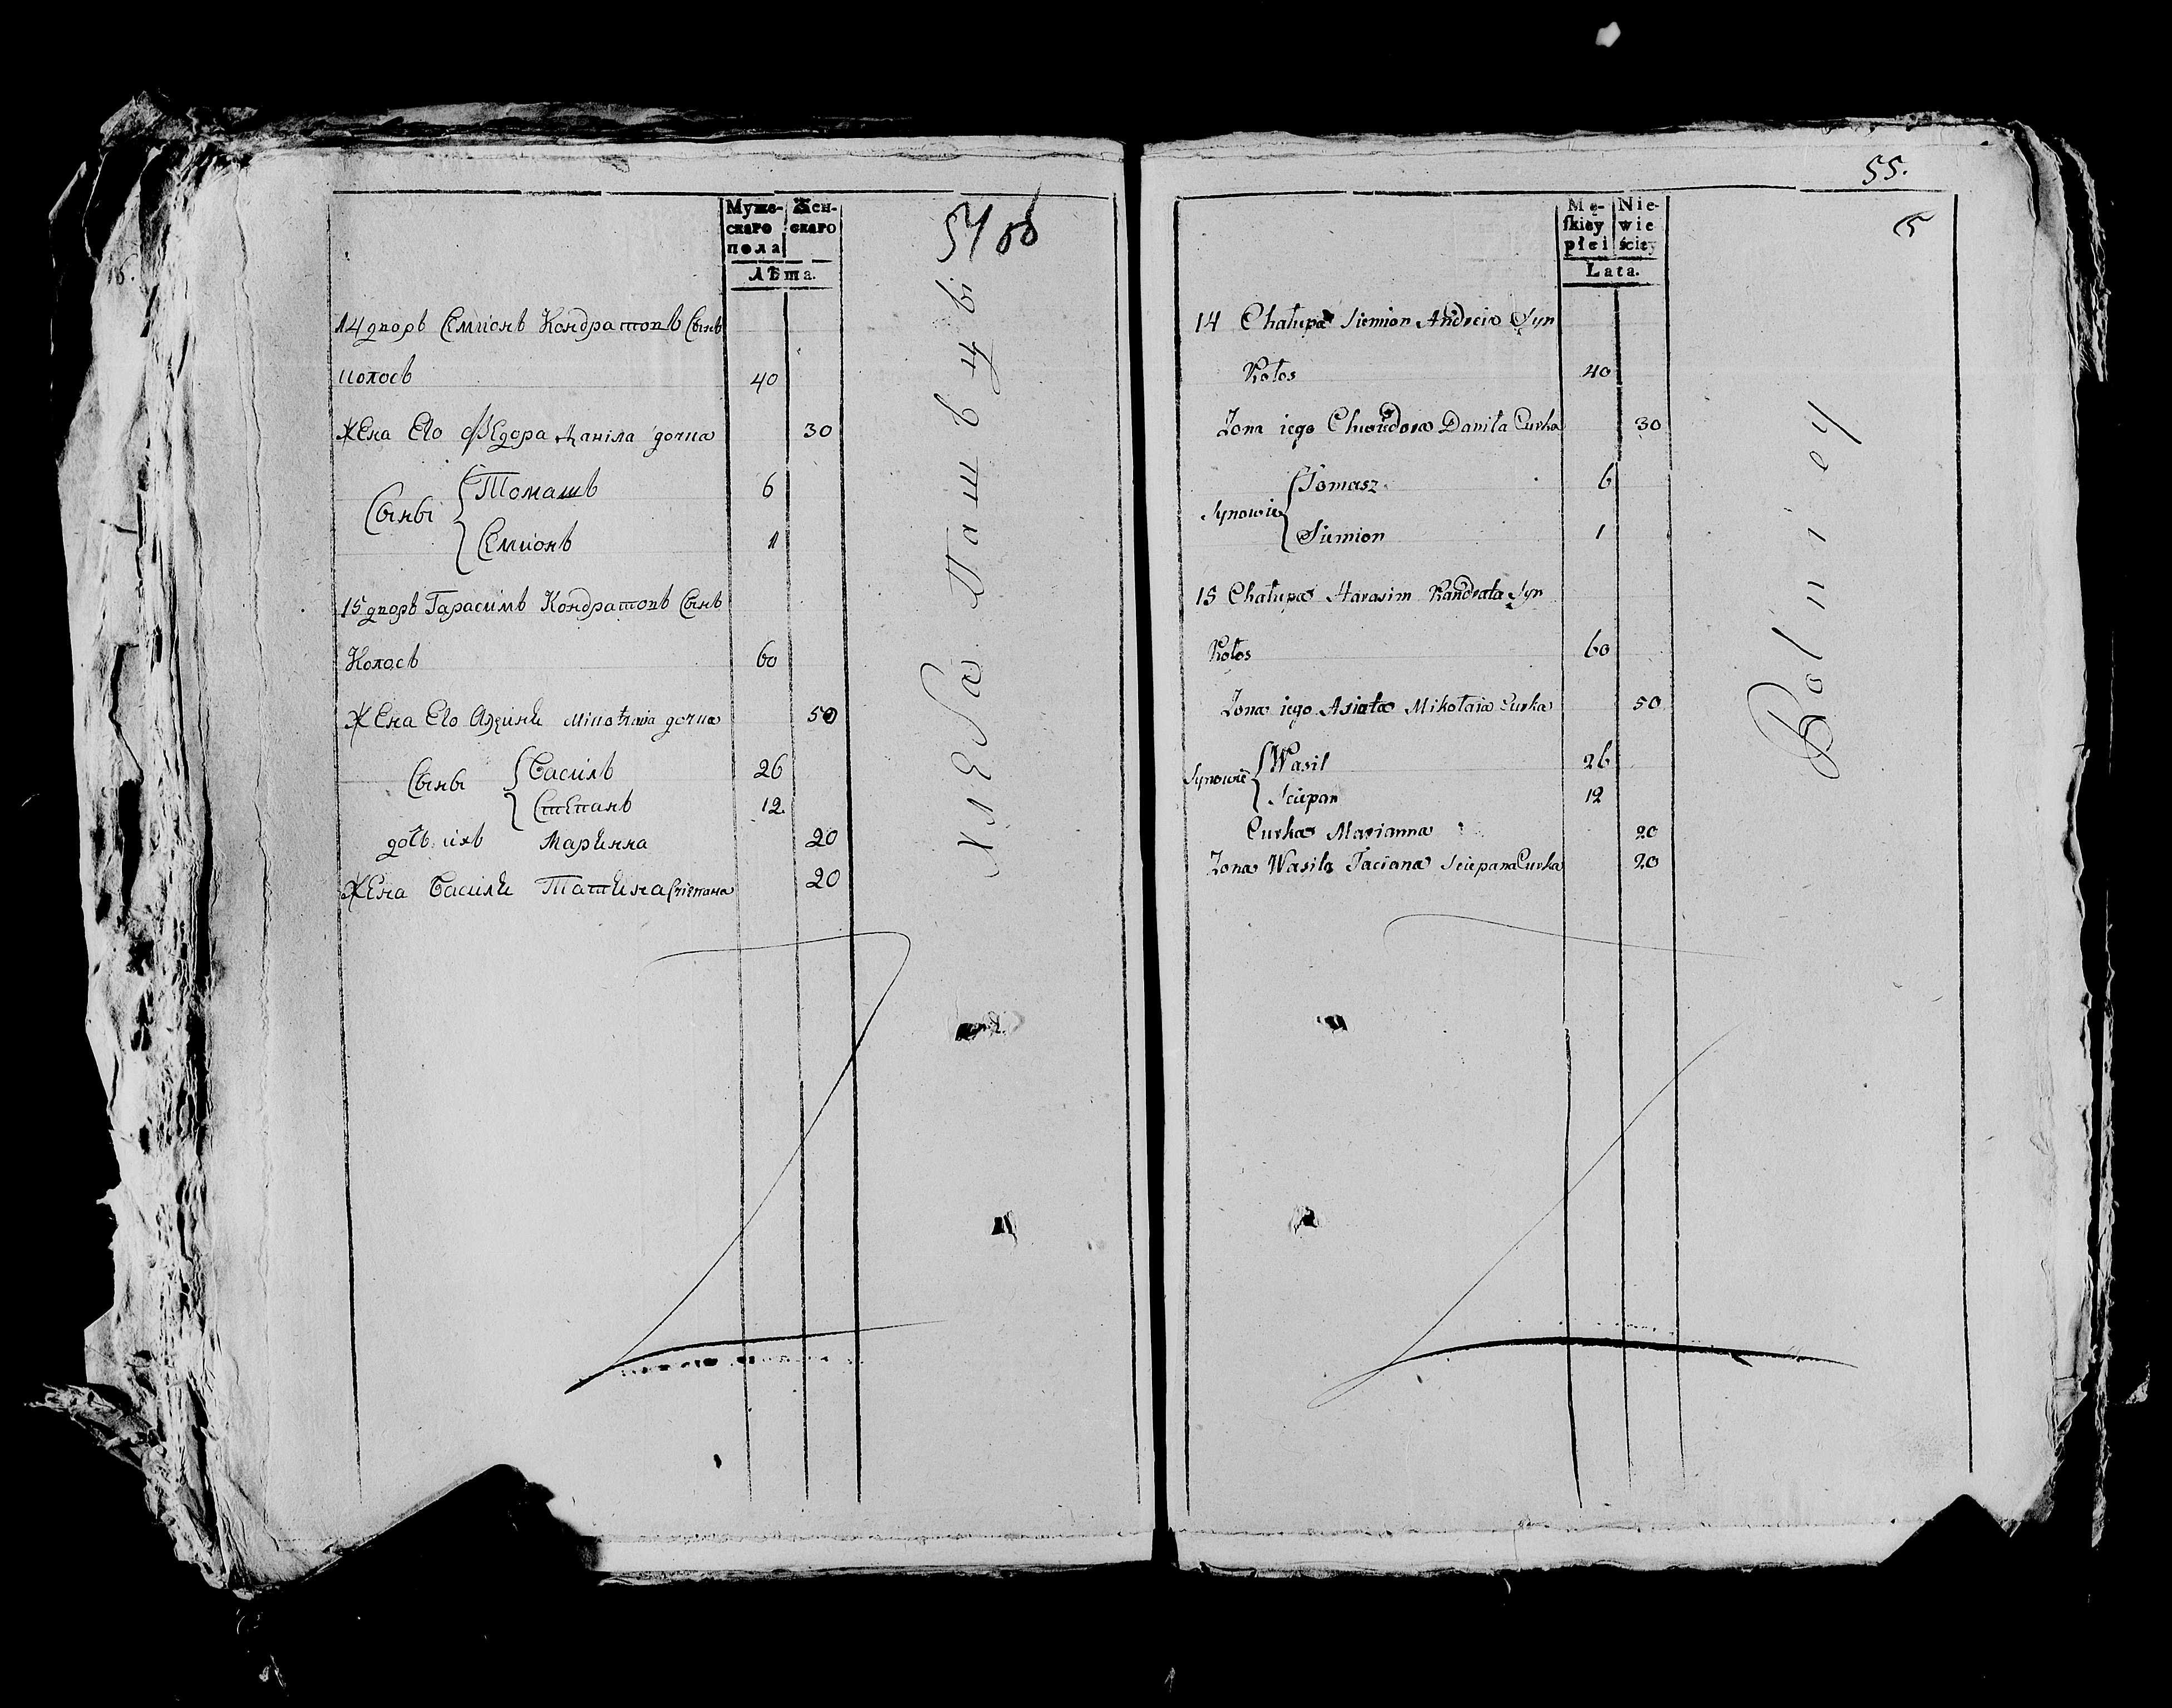 Муже-
скаго
пола
Жен-
скаго
Лѣта.
54 об
14 дворъ Семионъ Кондратовъ Сынъ
колосъ 40
Жена Его Ѳедора Даніла дочка 30
Сыны
Томашъ 6
Семионъ 1
15 дворъ Гарасимъ Кондратовъ Сынъ
Колосъ 60
Жена Его дочка 50
Сыны
Василь 26
Степанъ 12
дочь ихъ Марѣнна 20
Жена Василѣ Татѣна Степана 20
Хлебапашъцы
55.
5
Mę-
skiey
płci
Nie-
wie
ściey
Lata.
14 Chałupa Siemion Andreia Syn
Kołos 40
Zona iego Chwiedora Daniła Curka 30
Synowie
Tomasz 6
Siemion 1
15 Chałupa Harasim Kandrata Syn
Kołos 60
Zona iego Mikołaia Curka 50
Synowie
Wasil 26
Sciepan 12
Curka Marianna 20
Zona Wasila Taciana Sciepana Curka 20
Rolniey